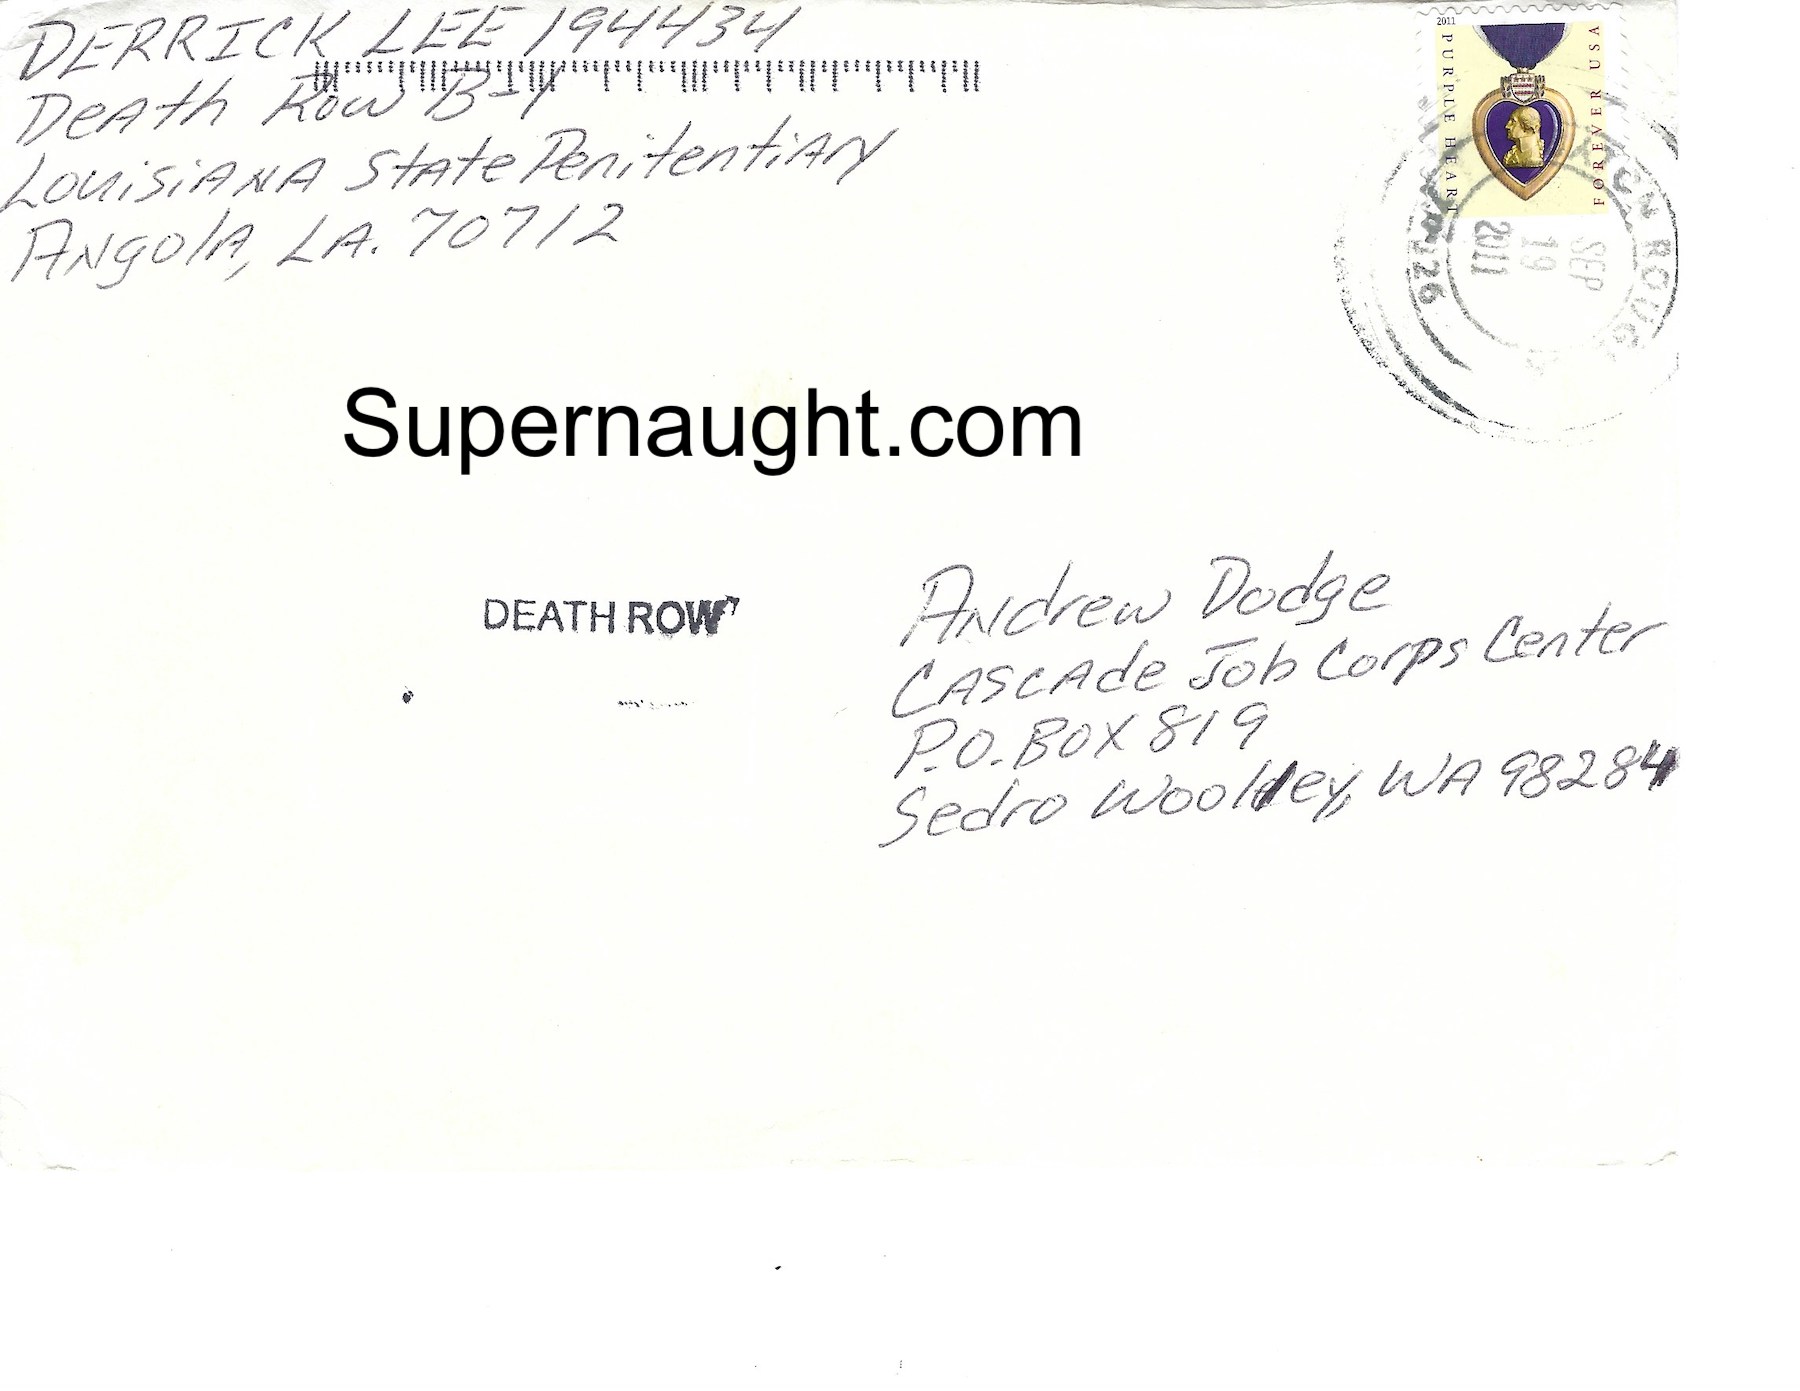 DERRICK LEE 194434
Death Row B-1
Louisiana State Penitentiary
Angola, LA. 70712
2011
PURPLE HEART
FOREVER USA
ROUG
SEP
19
2011
Supernaught.com
DEATH ROW
Andrew Dodge
Cascade Job Corps Center
P.O. Box 819
Sedro Woolley, WA 98284